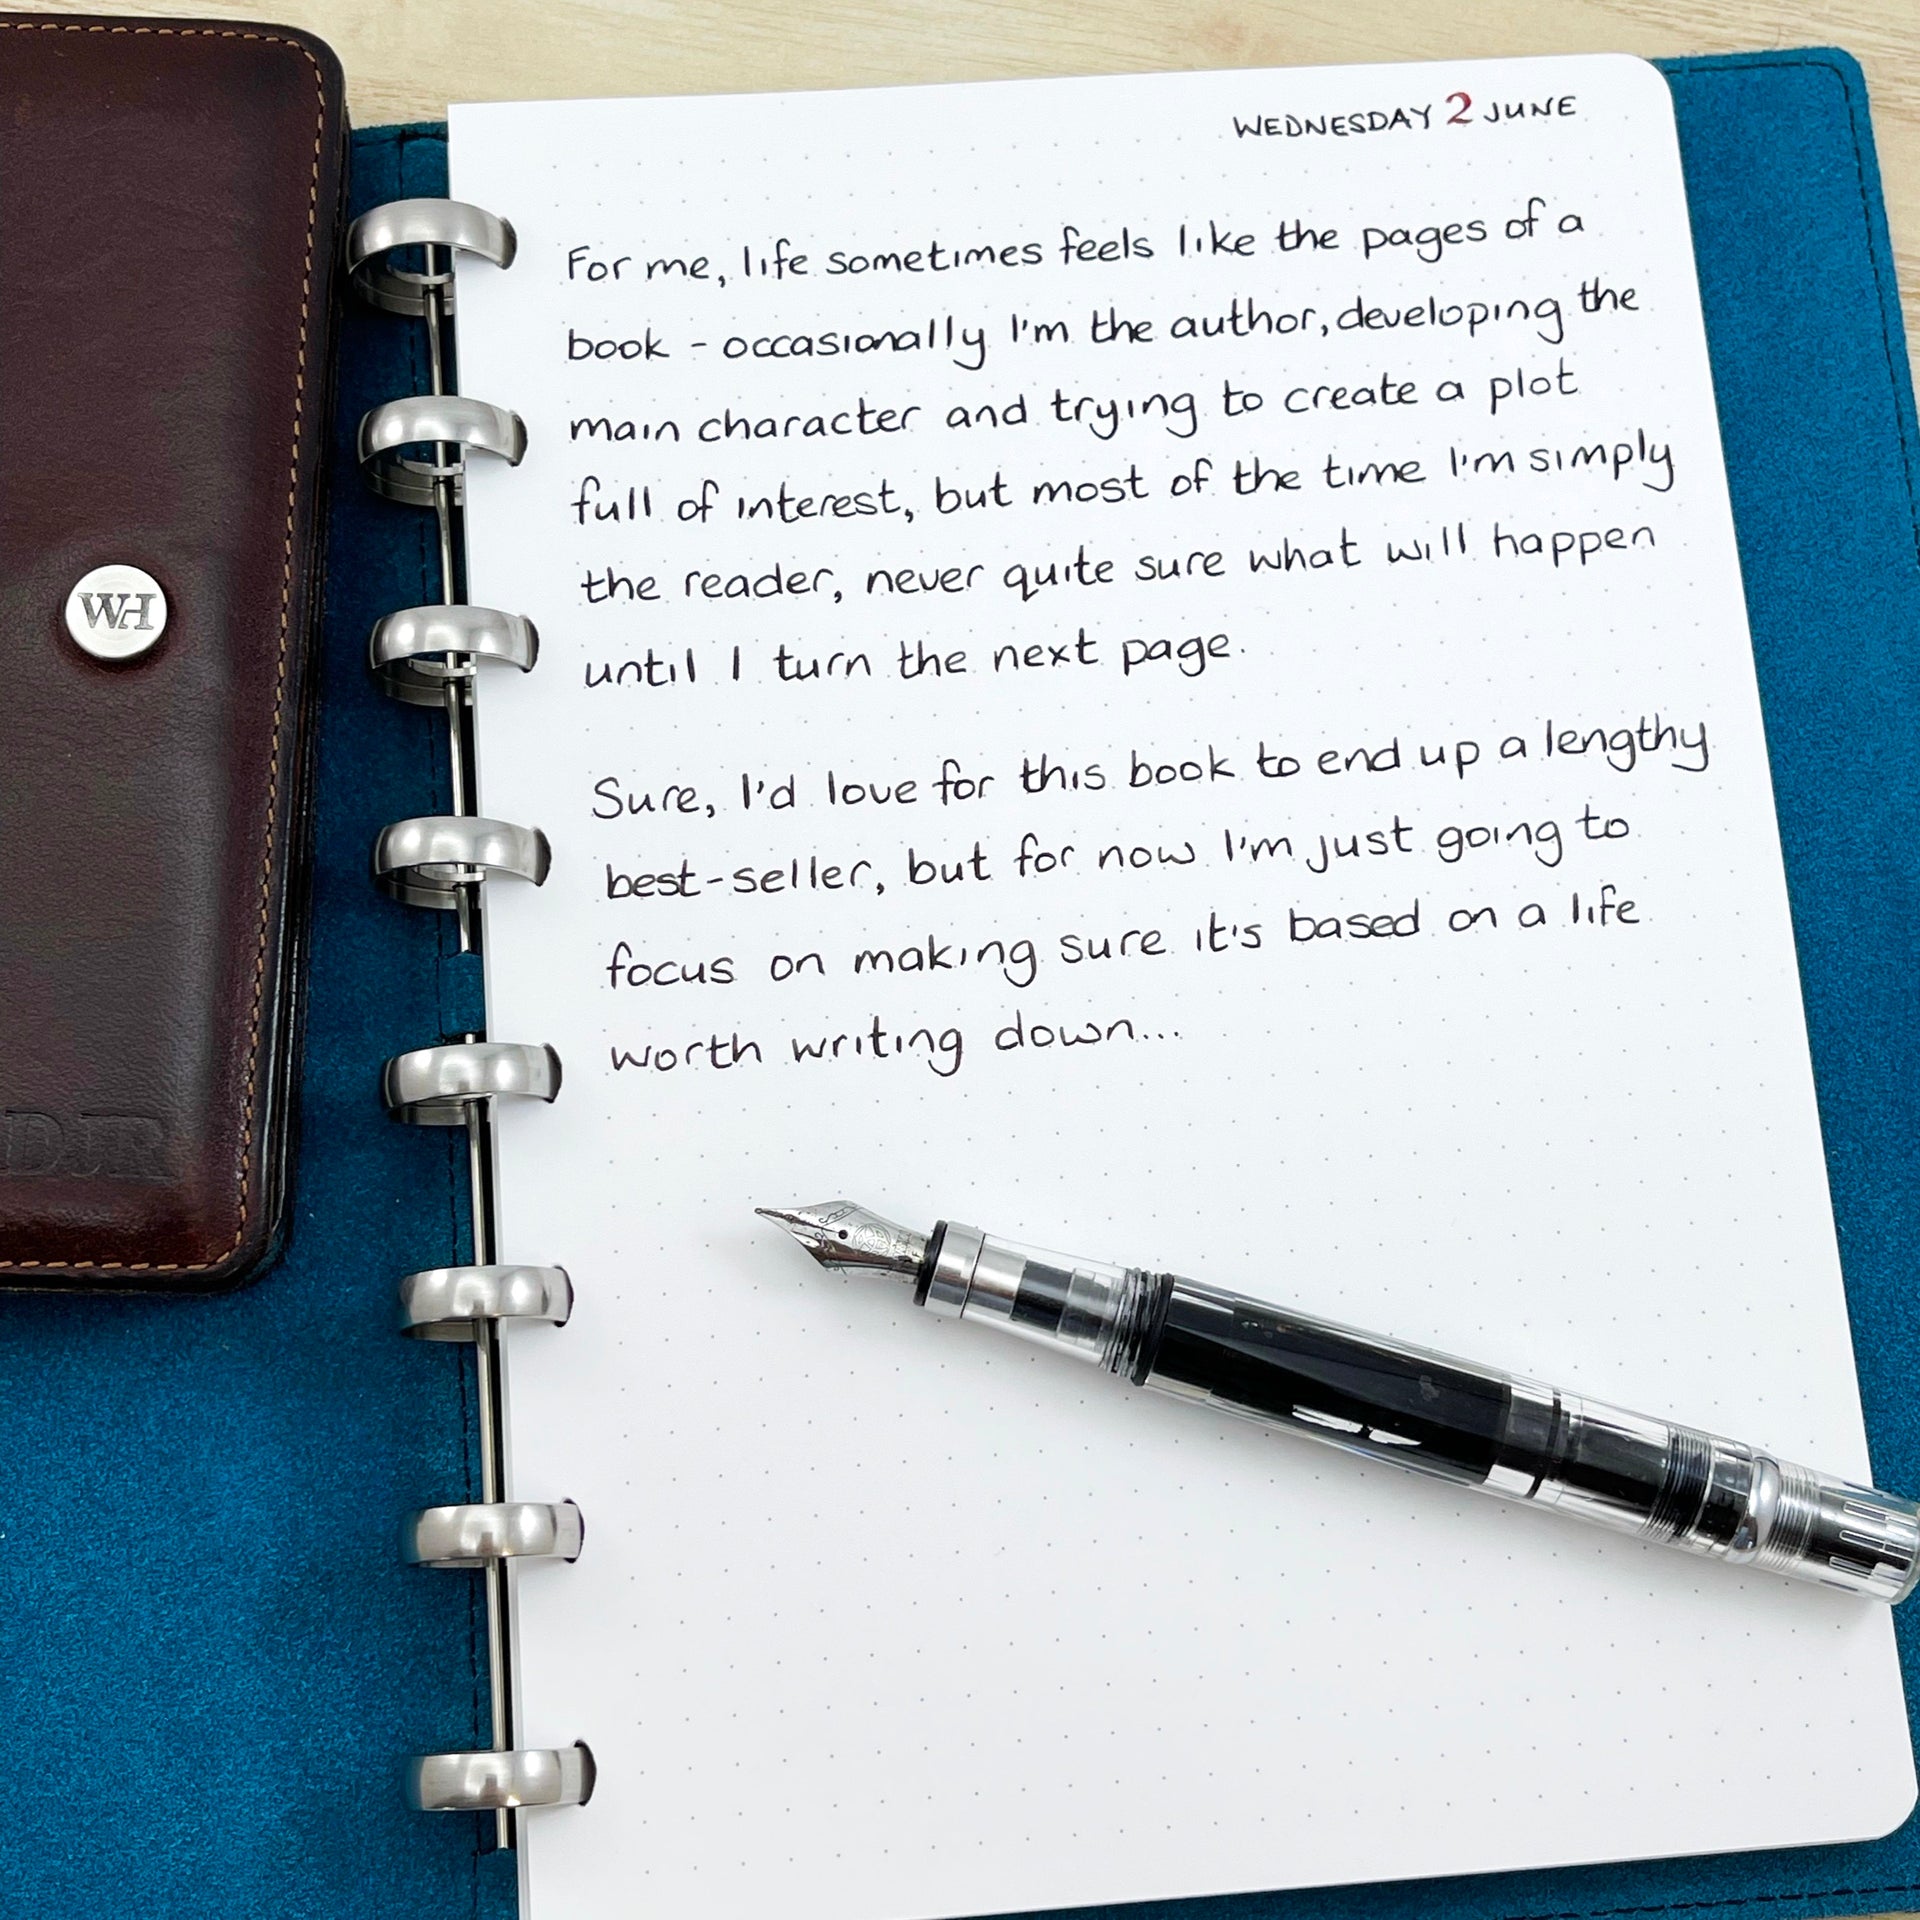 WEDNESDAY 2 JUNE
For me, life sometimes feels like the pages of a
book - occasionally I'm the author, developing the
main character and trying to create a plot
full of interest, but most of the time I'm simply
the reader, never quite sure what will happen
until I turn the next page.
Sure, I'd love for this book to end up a lengthy
best-seller, but for now I'm just going to
focus on making sure it's based on a life
worth writing down...
WH
DJR